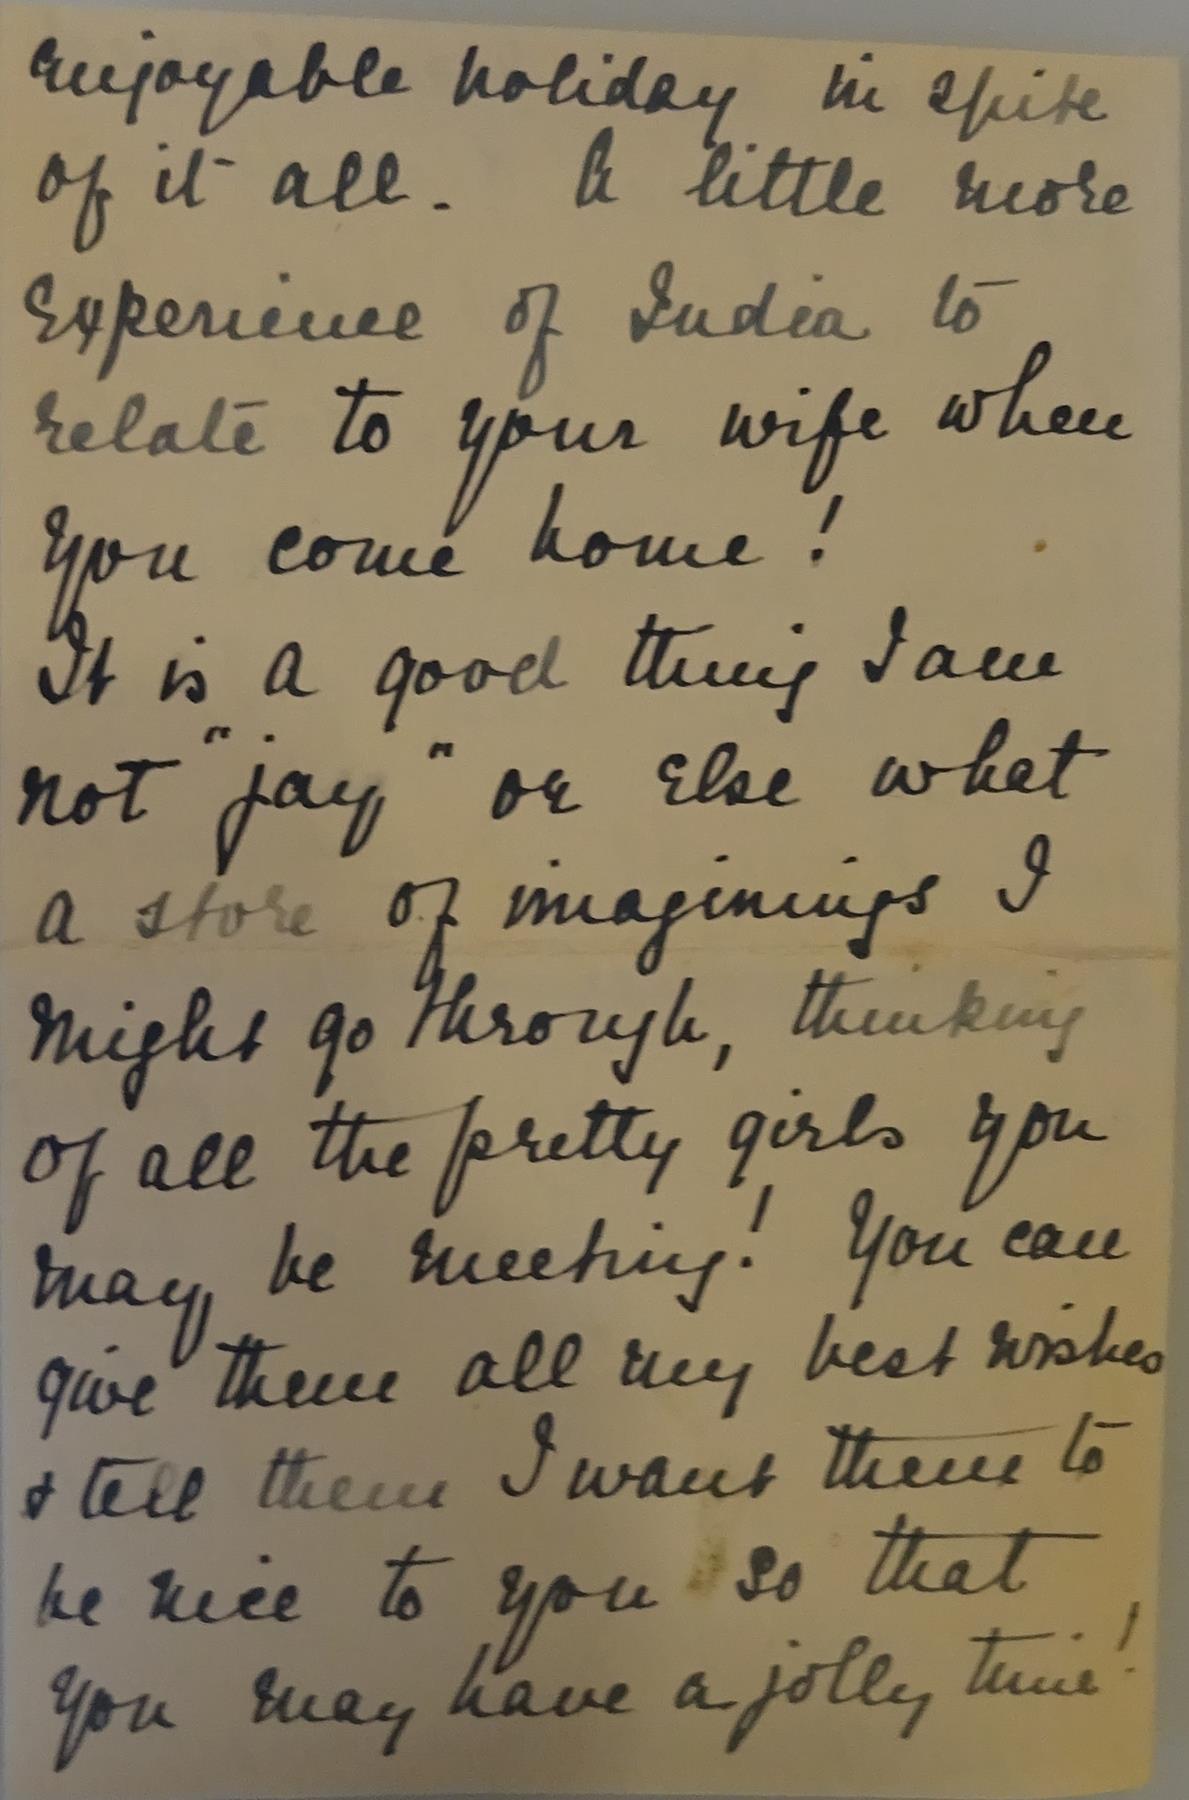 enjoyable holiday in spite
of it all. A little more
experience of India to
relate to your wife when
you come home!
It is a good thing I am
not "jay" or else what
a store of imaginings I
might go through, thinking
of all the pretty girls you
may be meeting! You can
give them all my best wishes
& tell them I want them to
be nice to you so that
you may have a jolly time!